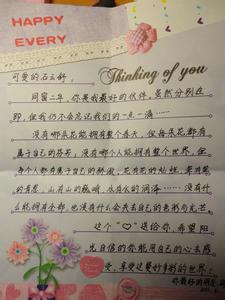 HAPPY
EVERY
Thinking of you
可爱的石云舒:
同窗二年,你是我最好的伙伴,虽然分别在
即,但我仍不会忘记我们的一点一滴……
没有哪朵花能拥有整个春天,但每朵花都有
属于自己的芬芳,没有哪个人能拥有整个世界,但
每个人都有属于自己的骄傲,花有花的灿烂,草有草
的青葱,山有山的巍峨,水有水的润泽……没有什
么能拥有全部,也没有什么会失去自己的色彩与光芒
这个"♡"送给你,希望阳
光自信的你能用自己的心去感
受,享受这美好多彩的世界!
你最好的朋友